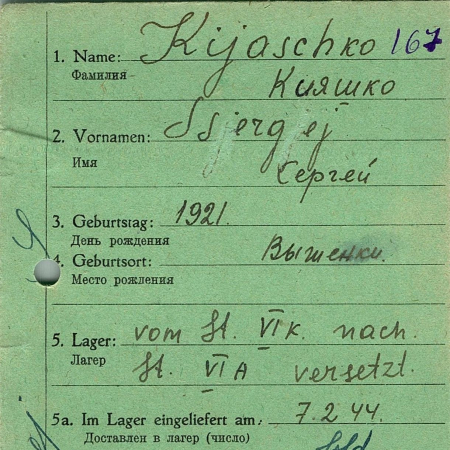 1. Name: Kijaschko 167
Фамилия Кияшко
2. Vornamen: Ssjergej
Имя Сергей
3. Geburtstag: 1921.
День рождения
4. Geburtsort: Выженки.
Место рождения
5. Lager: vom St. VI K. nach.
Лагер St. VI A versetzt.
5a. Im Lager eingeliefert am: 7.2 44.
Доставлен в лагер (число)